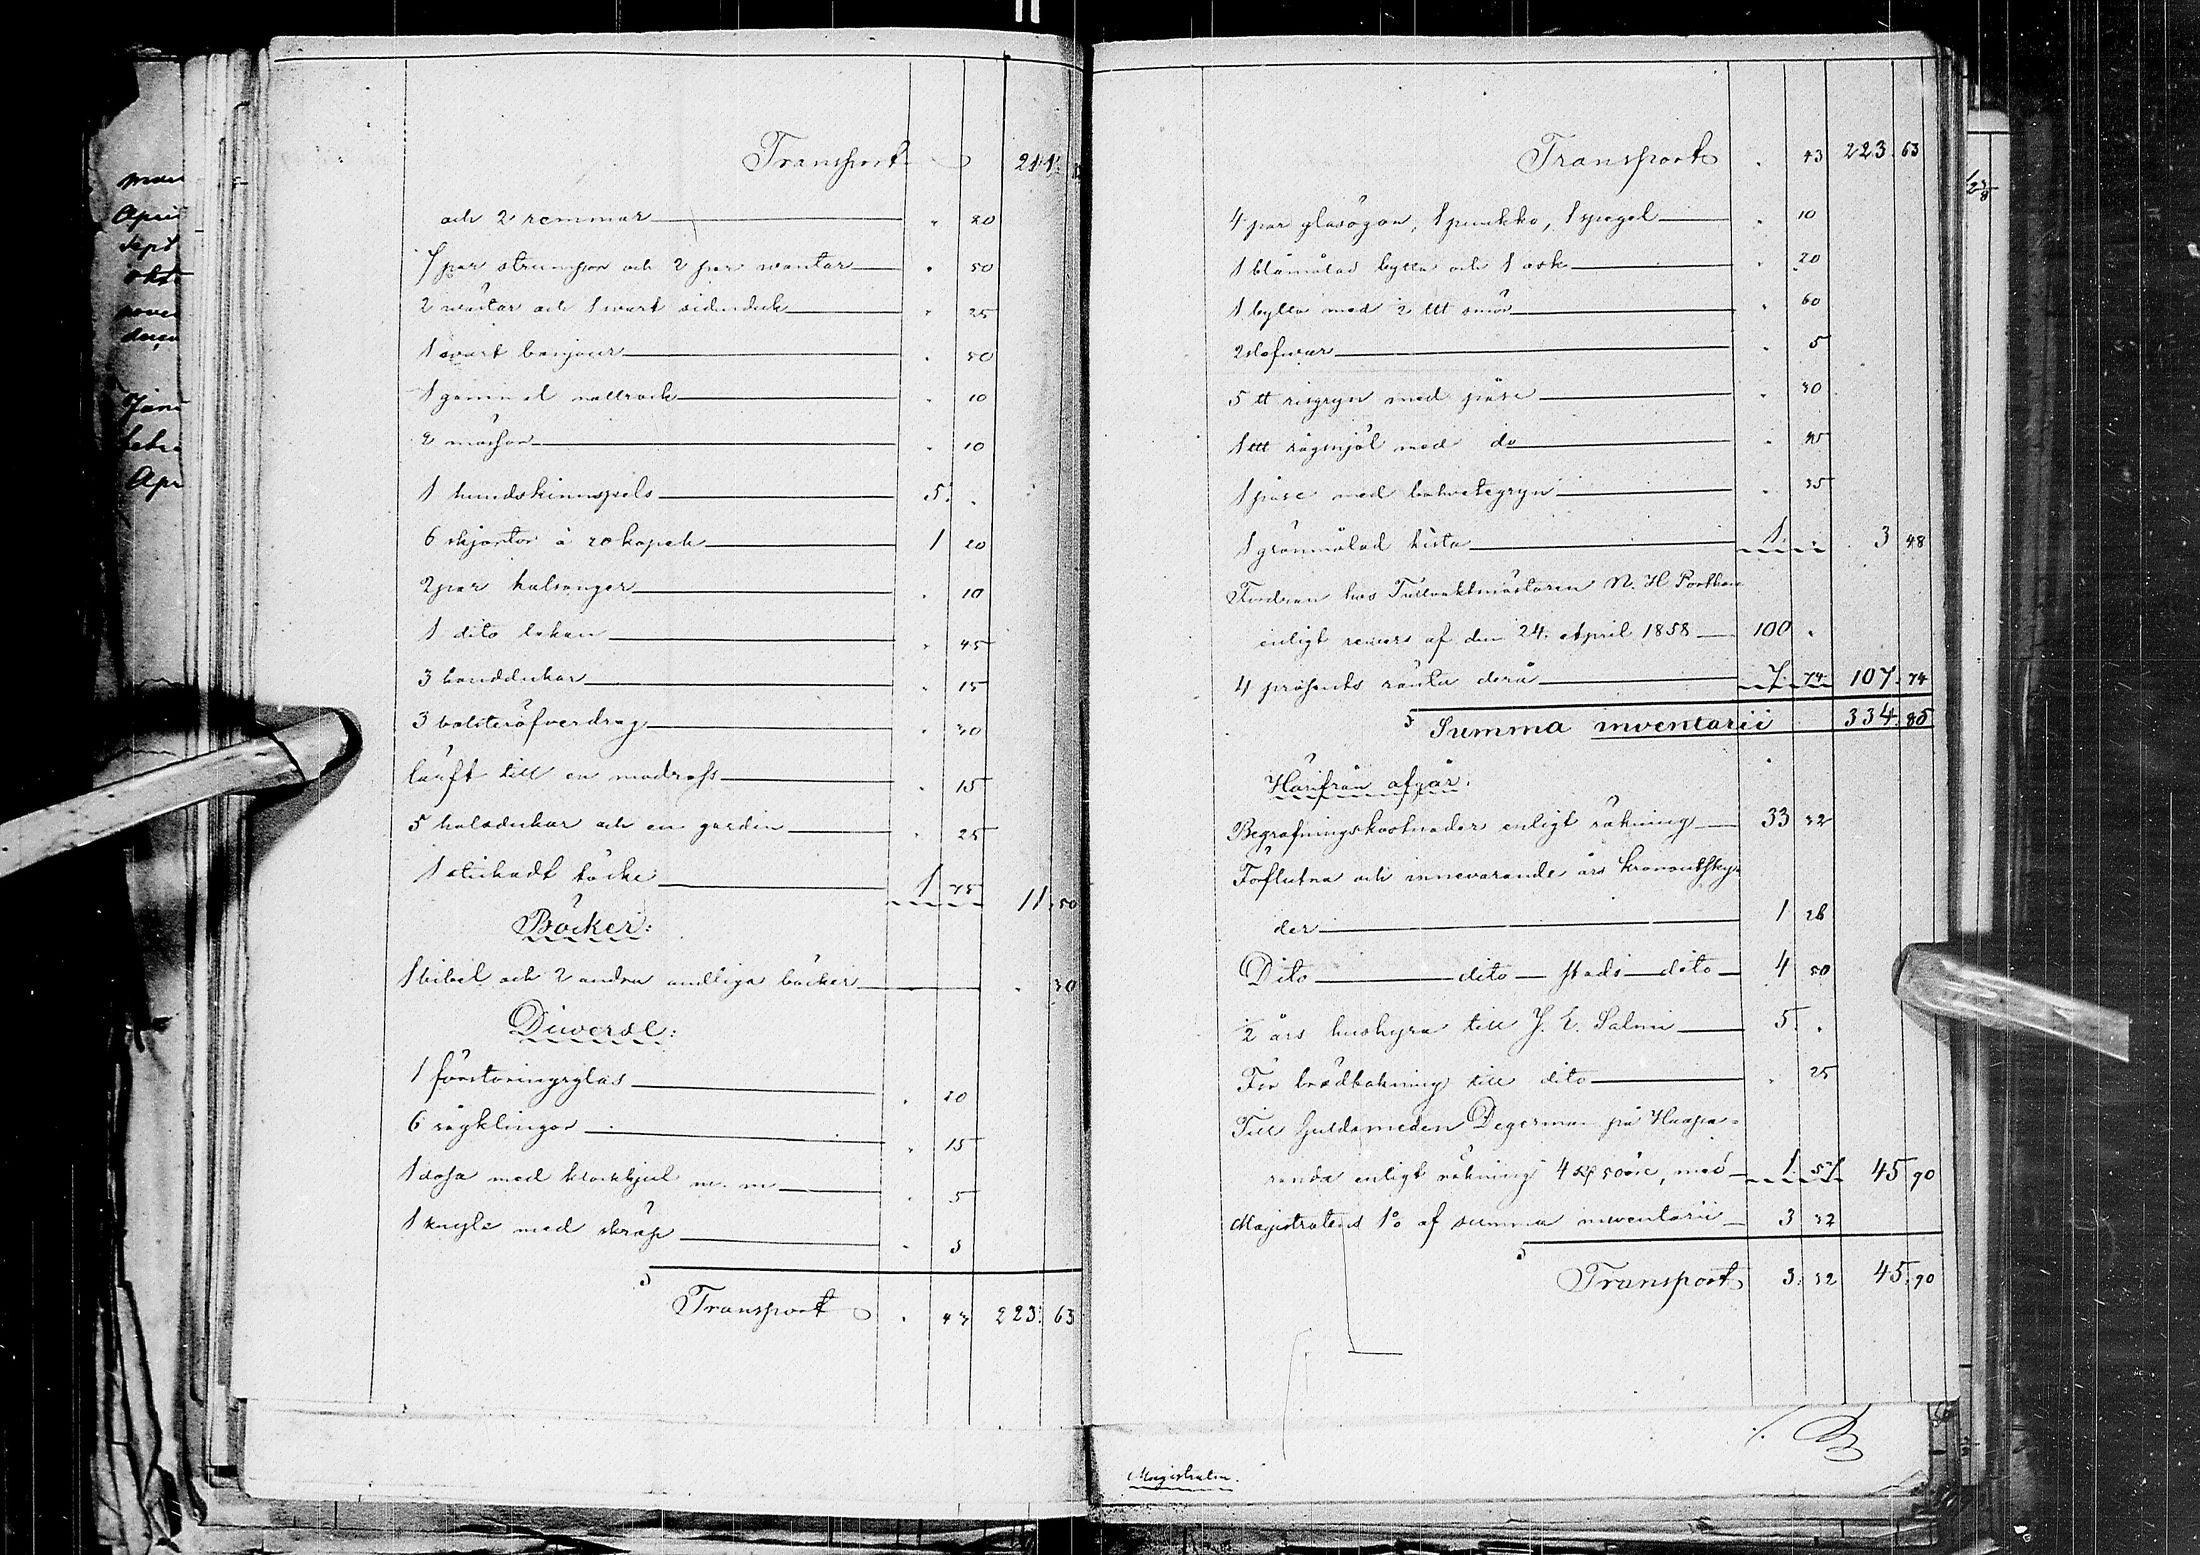 Transport 211.
och 2 remmar . 20
7 par strumpor och 2 par wantar . 50
2 wästar och 1 swart sidenduk . 25
1 swart bonjour . 50
1 gammal nattrock . 10
2 mössor . 10
1 hundskinnspels 5. .
6 skjortor à 20 kopek 1 20
2 par kalsonger . 10
1 dito lakan . 45
3 handdukar . 15
3 bolsteröfverdrag . 30
täuft till en madrass . 15
5 halsdukar och en gardin . 25
1 stickadt täcke 1 75 11. 50
Böcker:
1 bibel och 2 andra andliga böcker . 30
Diverse:
1 förstoringsglas . 20
6 sågklingor . 15
1 dosa med klockhjul m. m . 5
1 knyte med skräp . 3
Transport . 43 223. 63
Transport . 43 223. 63
4 par glasögon, 1 puukko, 1 spegel . 10
1 blåmålad bytta och 1 ask . 20
1 bytta med 2 ltt smör . 60
2 slefwar . 5
5 tt risgryn med påse . 30
1 ltt rågmjöl med do . 45
1 påse med bohvetegryn . 35
1 grönmålad kista 1. . 3 48
Fordran hos Tullvaktmästaren N. H. Porthan
enligt revers af den 24. April 1858 100 .
4 prosents ränta derå 7. 74. 107. 74
Summa inventarii 334. 85
Härifrån afgår:
Begrafningskostnader enligt räkning 33 32
Förflutna och innevarande års kronoutskyl
der 1 26
Dito dito stads dito 4 50
1/2 års hushyra till J. E. Salmi 5. .
För brödbakning till dito . 25
Till Guldsmeden Degerman på Haapa=
randa enligt räkning 4 50 öre, med 1. 57 45 90
Magistratens 1% af summa inventarii 3 32
Transport 3. 32 45. 90
Magistraten.